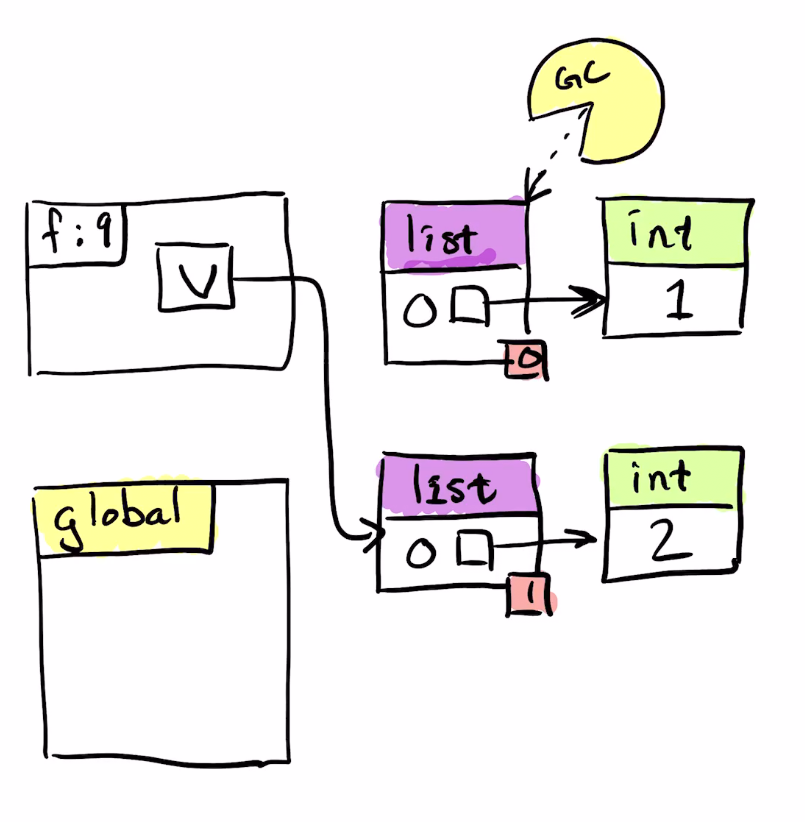 GC
f:9
V
list
0
0
int
1
global
list
0
1
int
2